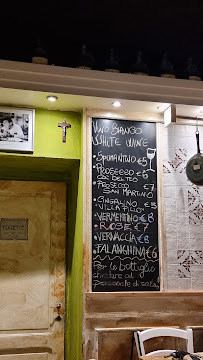 VINO BIANCO
WHITE WINE
SPUMANTINO €5
PROSECCO €5
COL DEL TEO
PROSECCO €7
SAN MARTINO
VILLA
VERMENTINO €8
ROSE €7
VERNACCIA €8
FALANGHINA €6
Per le bottiglie
chiedere al
personale di sala
TOILETTE